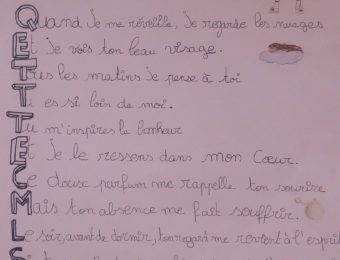 Quand je me réveille, je regarde les nuages
Et je vois ton beau visage.
Tous les matins je pense à toi
Tu es si loin de moi.
Tu m'inspires le bonheur
Et je le ressens dans mon Coeur.
Ce doux parfum me rappelle ton sourire
Mais ton absence me fait souffrir.
Le soir, avant de dormir, ton regard me revient à l'esprit
S